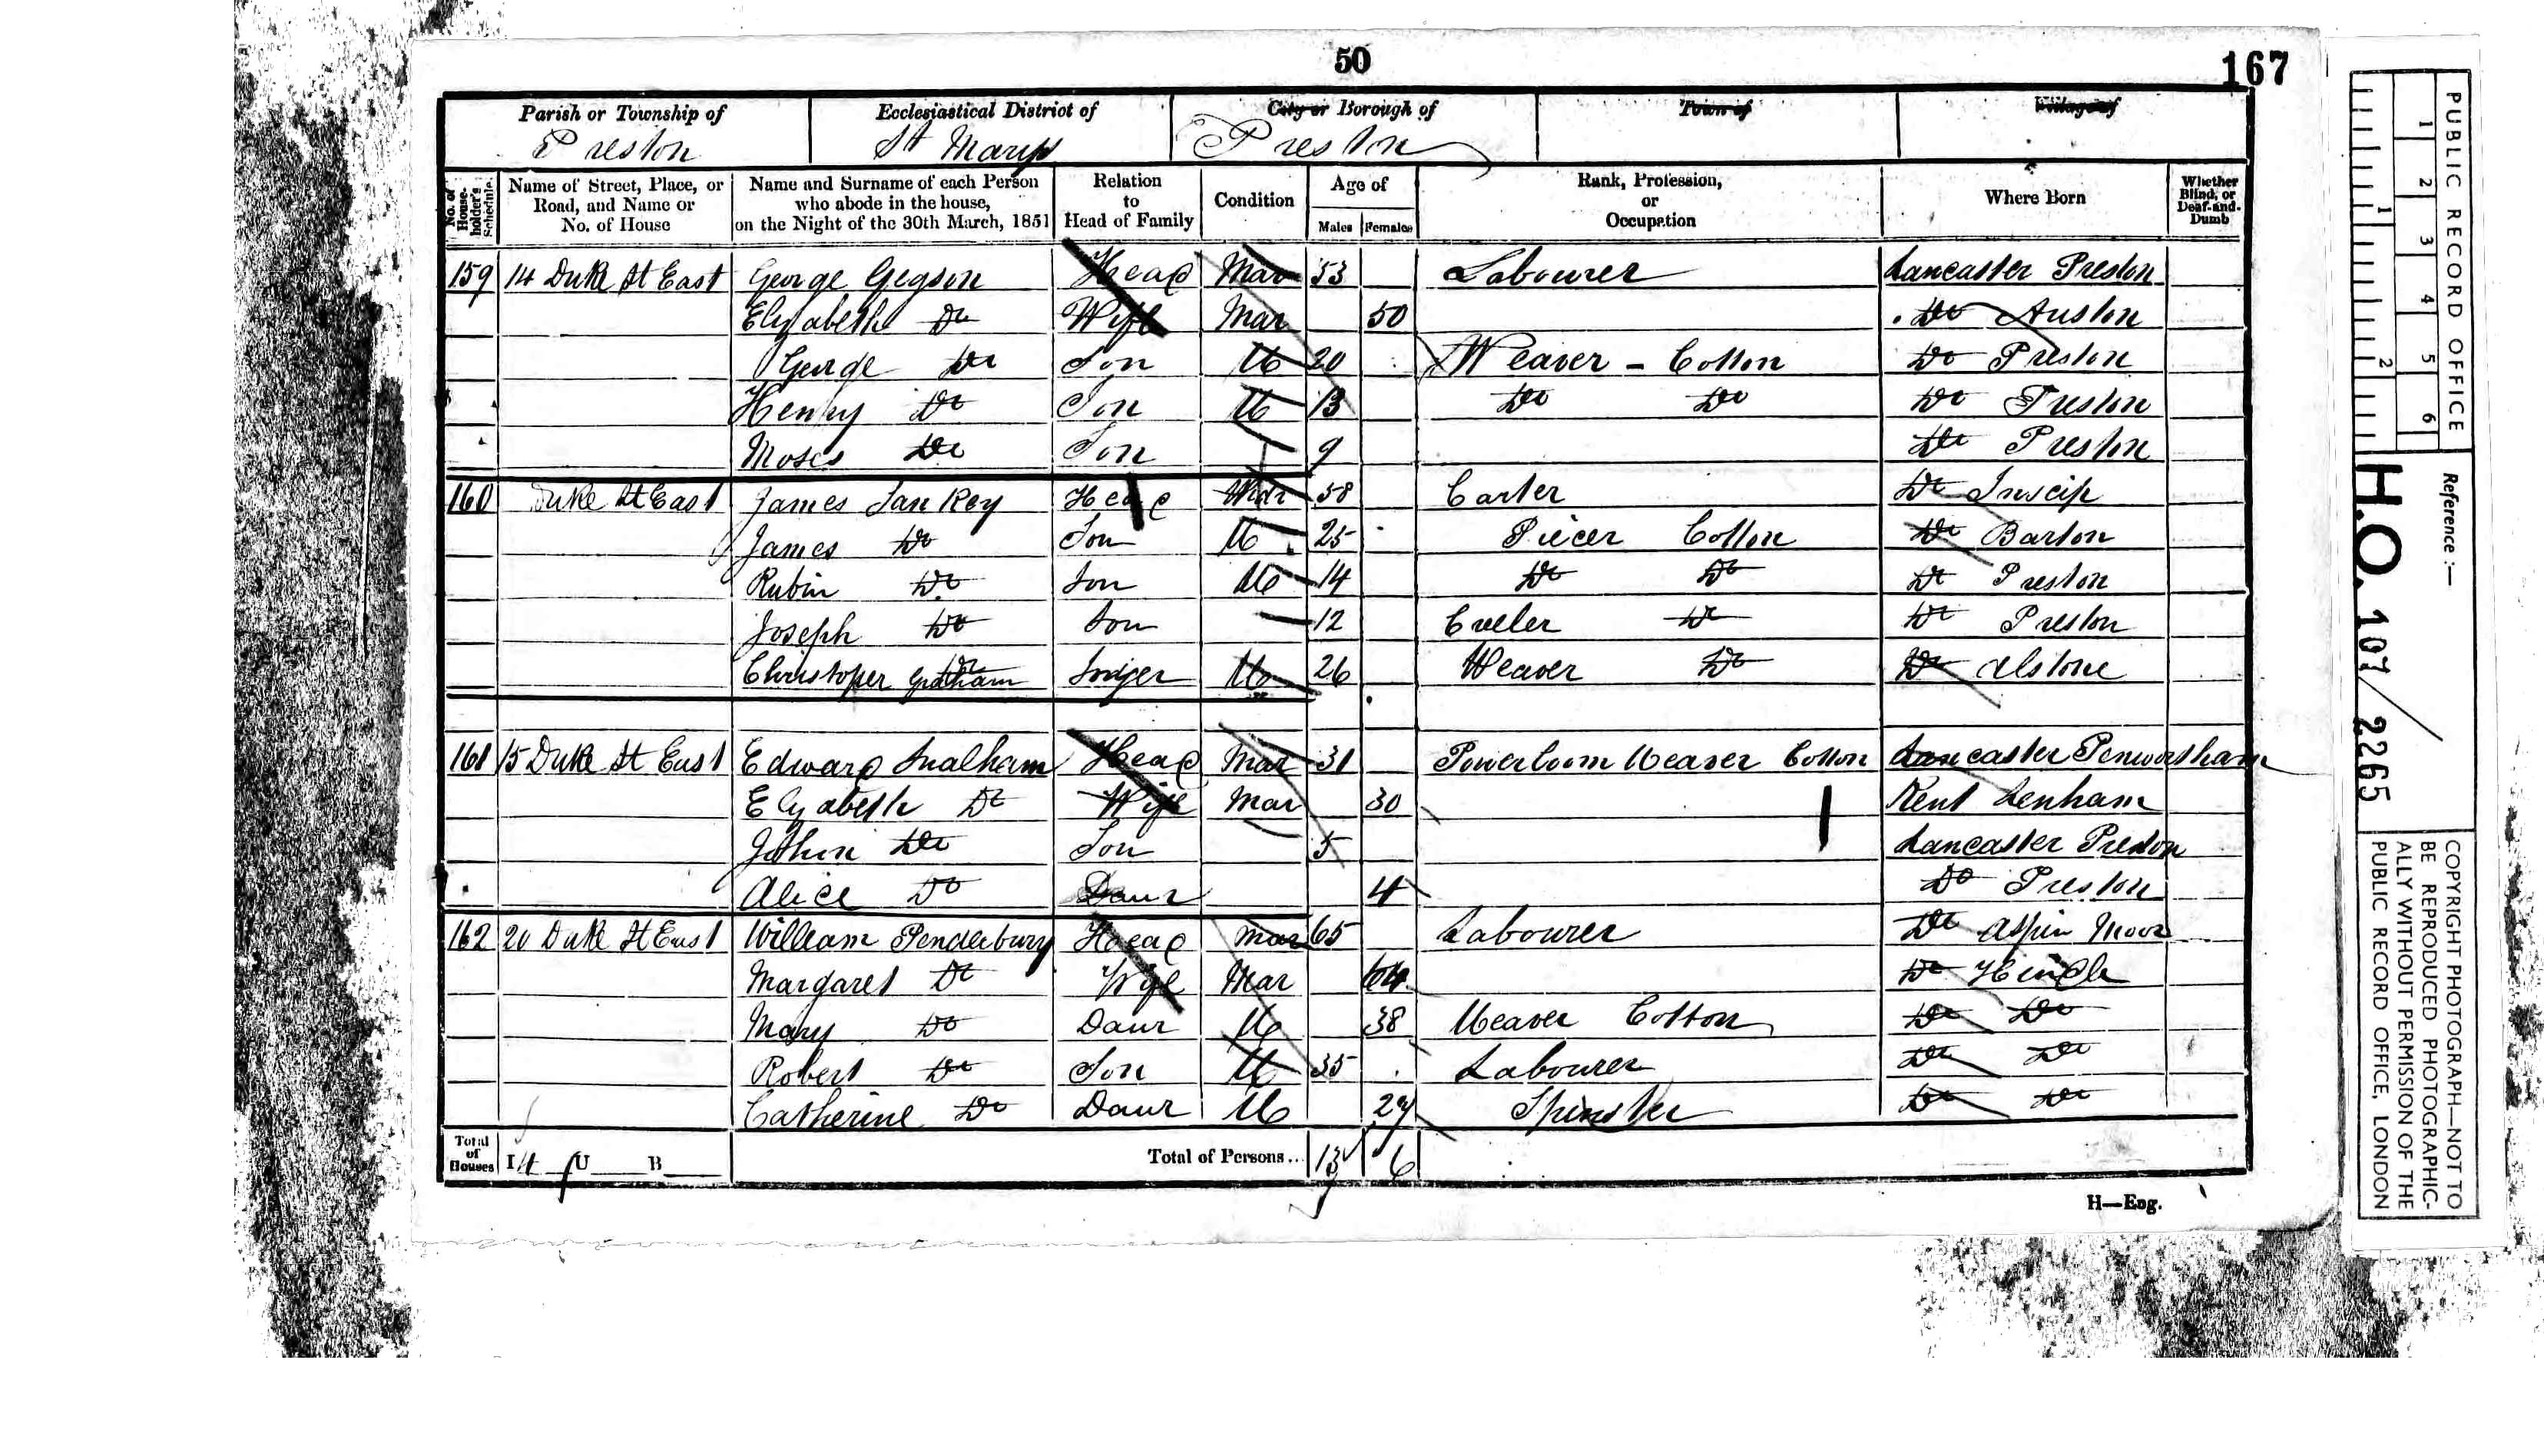 50
167
Parish or Township of
Preston
Ecclesiastical District of
St Marys
City or Borough of
Preston
Town of
Village of
No. of House-holder's Schedule
Name of Street, Place, or Road, and Name or No. of House
Name and Surname of each Person who abode in the house, on the Night of the 30th March, 1851
Relation to Head of Family
Condition
Age of
Males Females
Rank, Profession, or Occupation
Where Born
Whether Blind, or Deaf-and-Dumb
159 14 Duke St East George Gegson Head Mar 53 Labourer Lancaster Preston
Elizabeth Do Wife Mar 50 Do Auston
George Do Son U 20 Weaver - Cotton Do Preston
Henry Do Son U 13 Do Do Do Preston
Moses Do Son 9 Do Preston
160 Duke St East James Sankey Head Widr 58 Carter Do Inscip
James Do Son U 25 Piecer Cotton Do Barton
Rubin Do Son U 14 Do Do Do Preston
Joseph Do Son 12 Do Do Preston
Christoper Graham Lodger U 26 Weaver Do Do Alstone
161 15 Duke St East Edward Smalham Head Mar 31 Powerloom Weaver Cotton Lancaster Penwortham
Elizabeth Do Wife Mar 30 Kent Lenham
John Do Son 5 Lancaster Preston
Alice Do Daur 4 Do Preston
162 20 Duke St East William Penderbury Head Mar 65 Labourer Do Aspin Moor
Margaret Do Wife Mar 64 Do
Mary Do Daur U 38 Weaver Cotton Do Do
Robert Do Son U 35 Labourer Do Do
Catherine Do Daur U 27 Spinster Do Do
Total of Houses I 4 U B Total of Persons... 13 6
H—Eng.
PUBLIC RECORD OFFICE
1 2 3 4 5 6
1 2
Reference :—
H.O. 107/2265
COPYRIGHT PHOTOGRAPH—NOT TO
BE REPRODUCED PHOTOGRAPHIC-
ALLY WITHOUT PERMISSION OF THE
PUBLIC RECORD OFFICE, LONDON